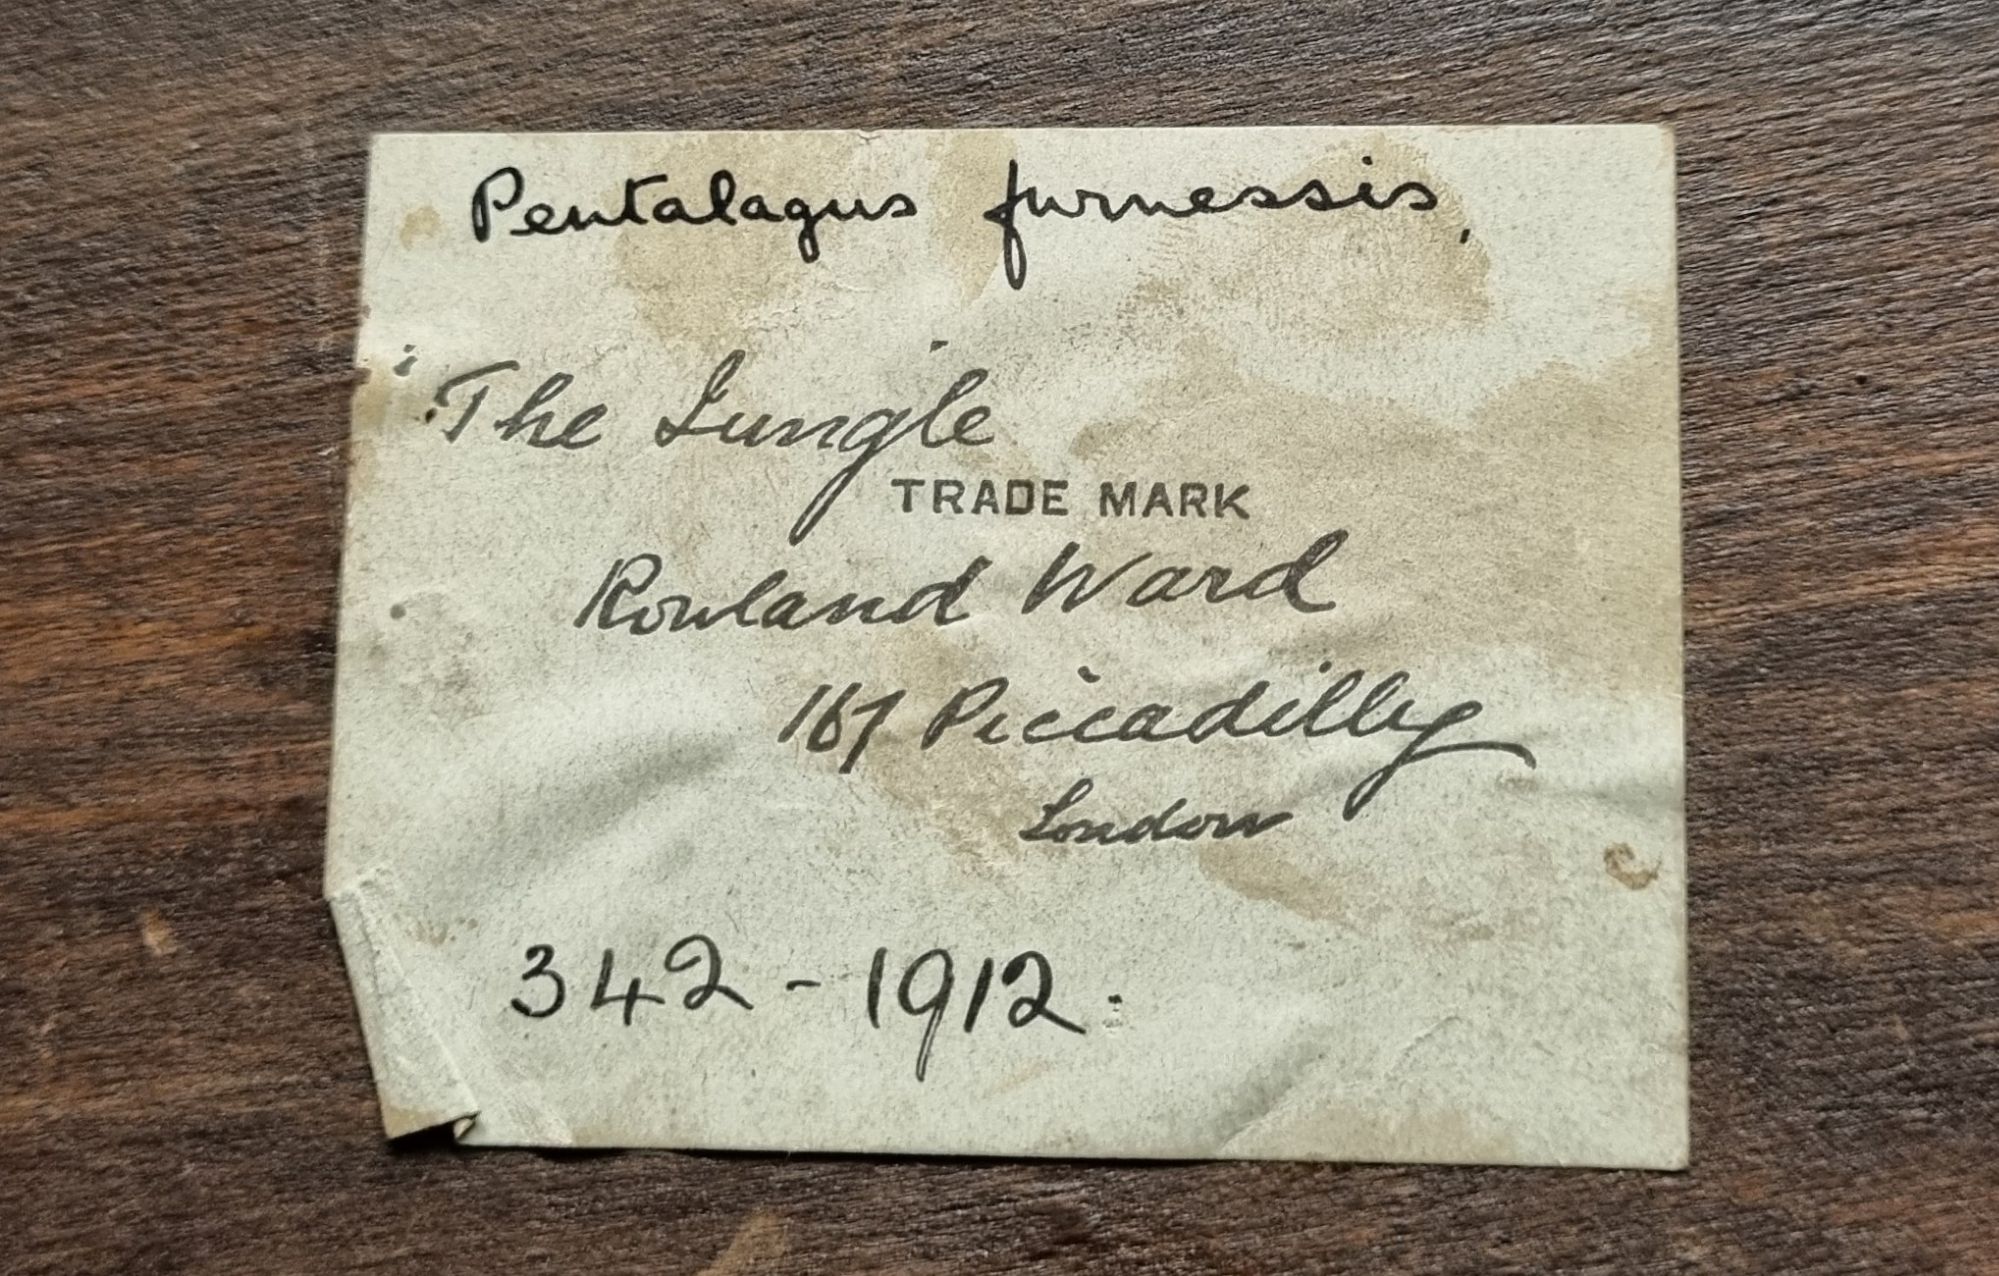 Pentalagus furnessis,
"The Jungle"
TRADE MARK
Rowland Ward
167 Piccadilly
London
342-1912.